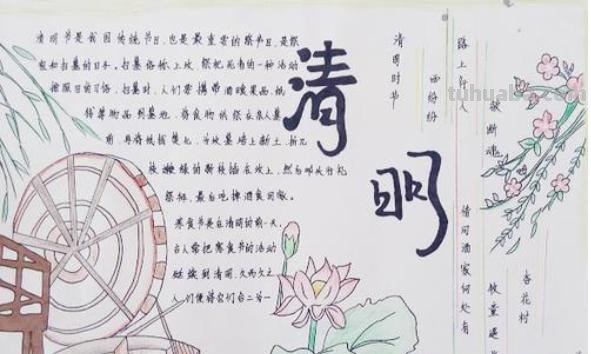 清明节是我国传统节日，也是最重要的祭节日，是祭
祖和扫墓的日子。扫墓俗称上坟，祭祀死者的一种活动
按照旧的习俗，扫墓时，人们要携带酒食果品、纸
钱等物品到墓地，将食物供祭在亲人墓
前，再将纸钱焚化，为坟墓培上新土，折几
枝嫩绿的新枝插在坟上，然后叩头行礼
祭拜，最后吃掉酒食回家。
寒食节是在清明的前一天，
古人常把寒食节的活动
延续到清明，久而久之
人们便将它们合二为一
清明
清明时节
雨纷纷
路上行人
欲断魂
借问酒家何处有
牧童遥
杏花村